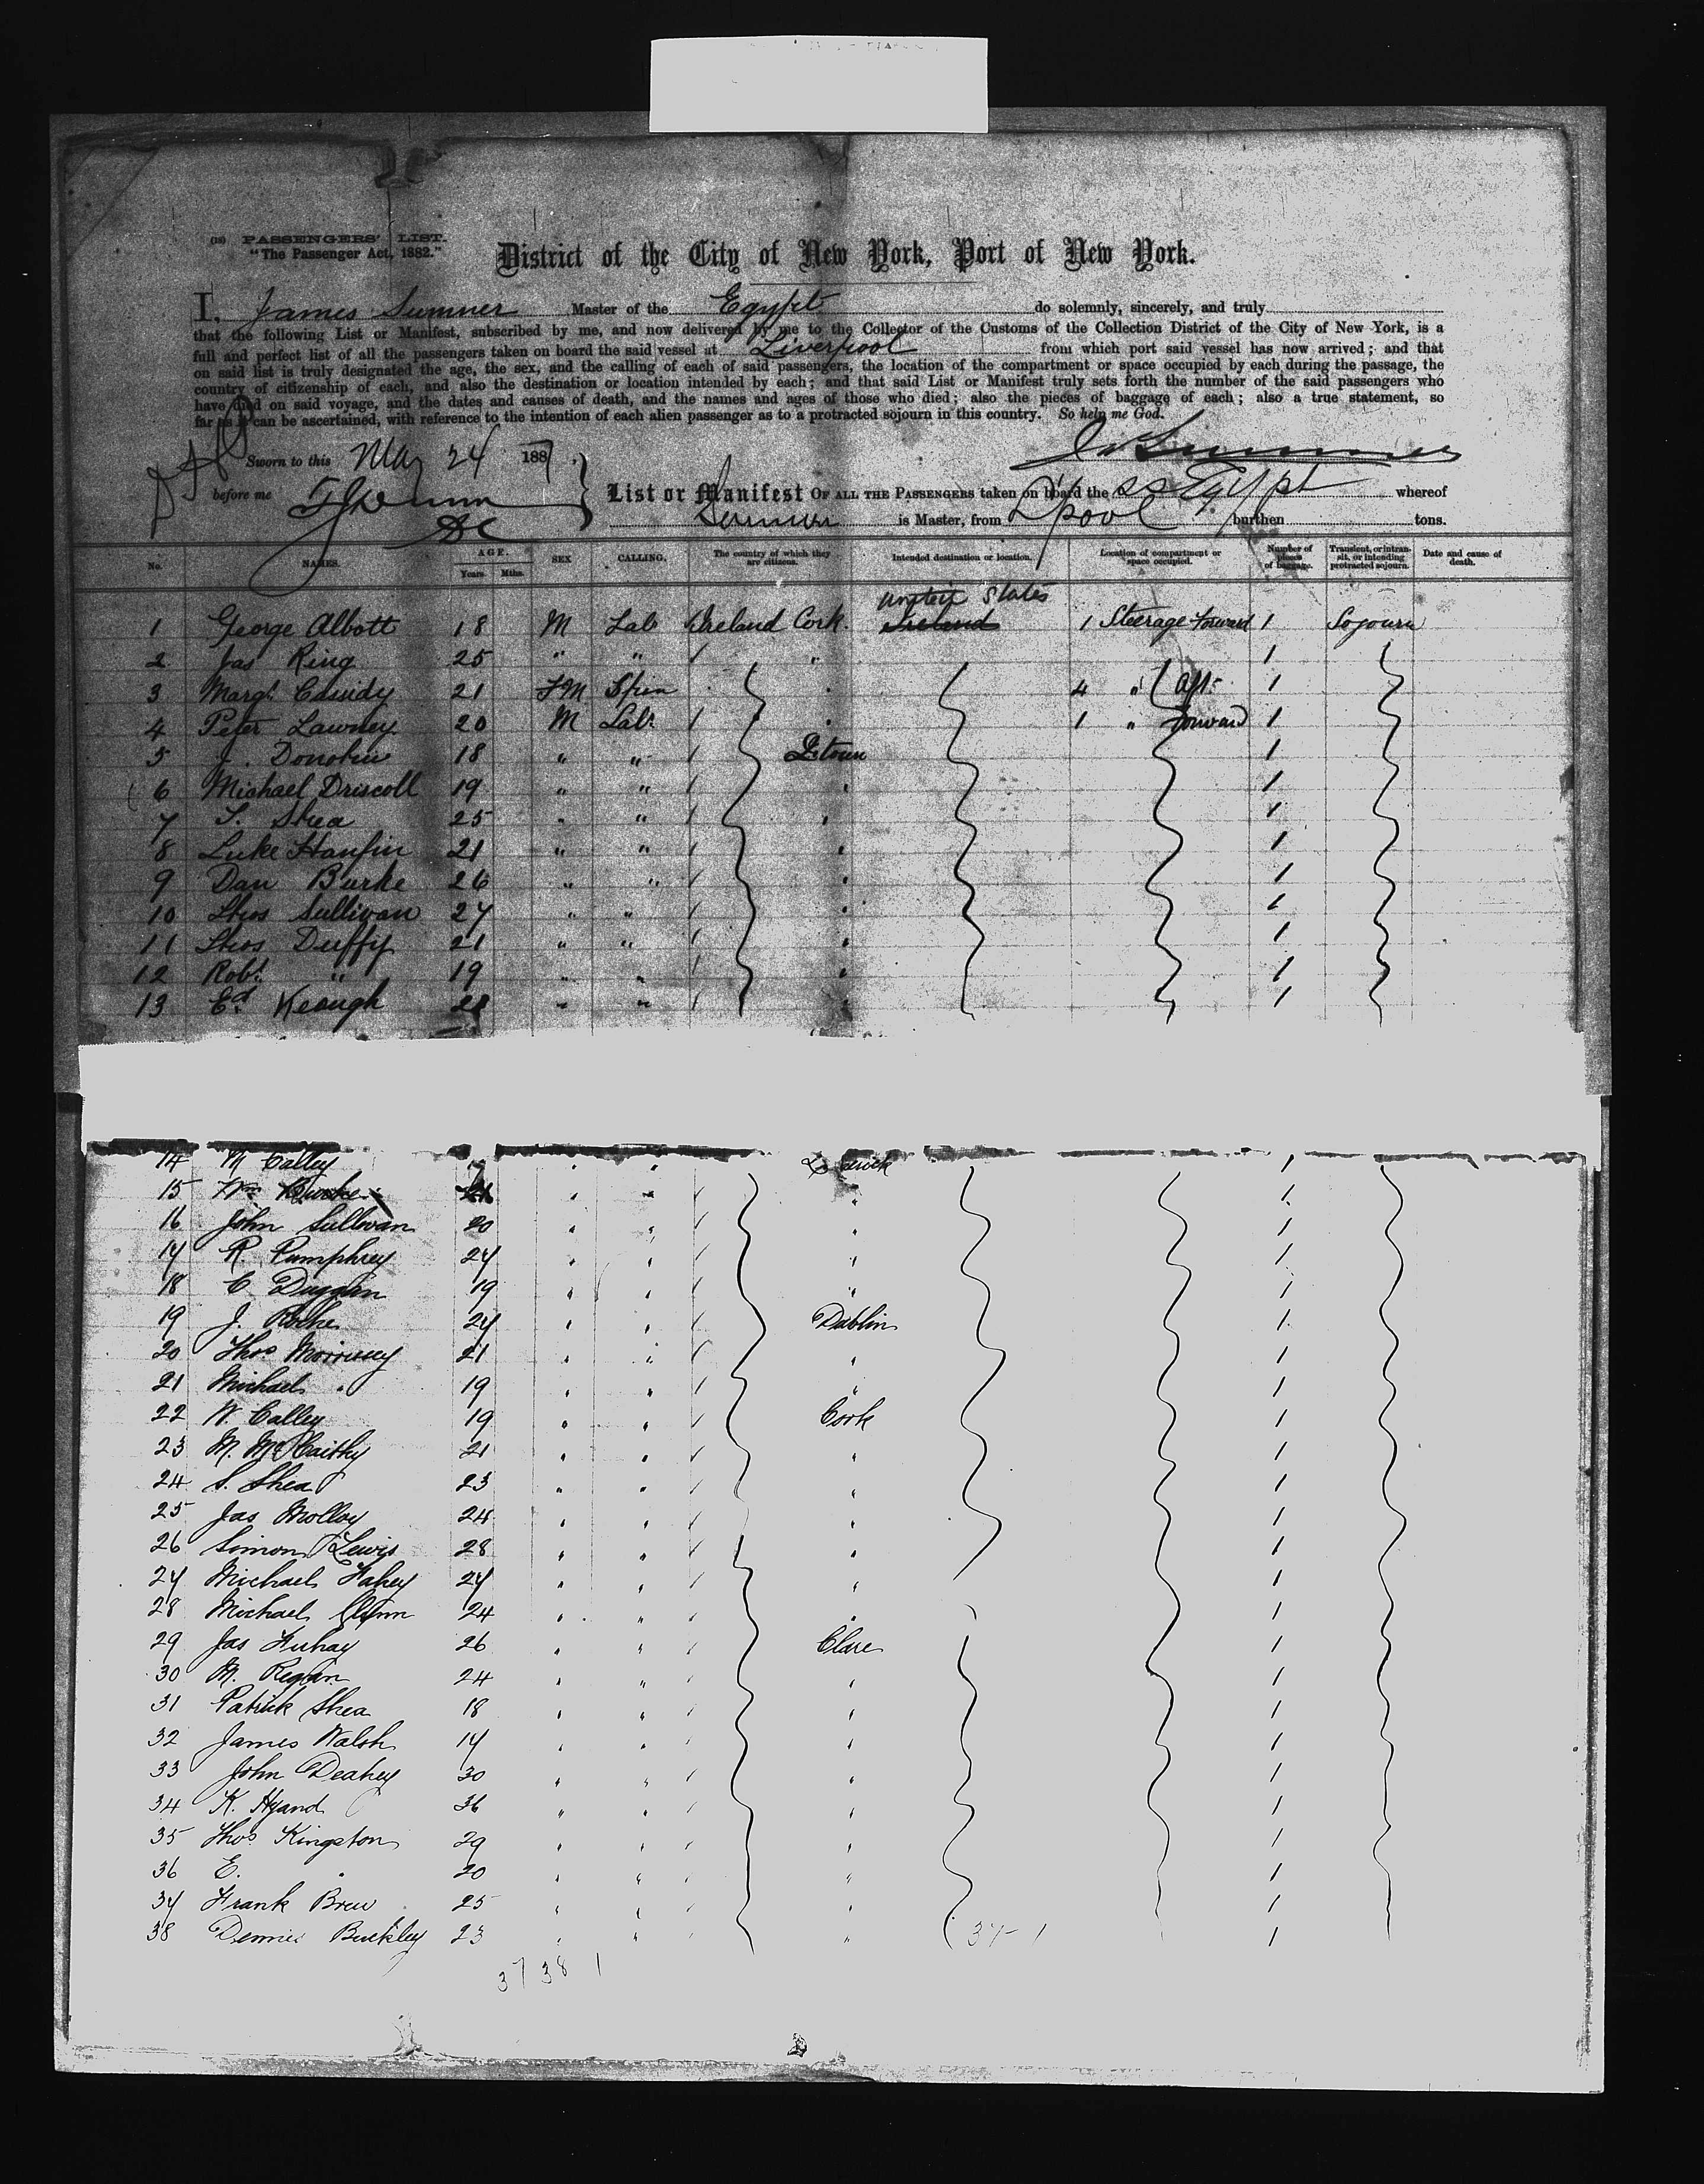 (18) PASSENGERS' LIST.
"The Passenger Act, 1882."
District of the City of New York, Port of New York.
I, James Sumner Master of the Egypt do solemnly, sincerely, and truly
that the following List or Manifest, subscribed by me, and now delivered by me to the Collector of the Customs of the Collection District of the City of New York, is a
full and perfect list of all the passengers taken on board the said vessel at Liverpool from which port said vessel has now arrived; and that
on said list is truly designated the age, the sex, and the calling of each of said passengers, the location of the compartment or space occupied by each during the passage, the
country of citizenship of each, and also the destination or location intended by each; and that said List or Manifest truly sets forth the number of the said passengers who
have died on said voyage, and the dates and causes of death, and the names and ages of those who died; also the pieces of baggage of each; also a true statement, so
far as it can be ascertained, with reference to the intention of each alien passenger as to a protracted sojourn in this country. So help me God.
Sworn to this May 24 1887.
before me
List or Manifest OF ALL THE PASSENGERS taken on board the SS Egypt whereof
Sumner is Master, from L'pool burthen tons.
No. NAMES. AGE. Years. Mths. SEX CALLING. The country of which they are citizens. Intended destination or location. Location of compartment or space occupied. Number of pieces of baggage. Transient, or in transit, or intending protracted sojourn. Date and cause of death.
United States
1 George Albott 18 M Lab Ireland Cork. Ireland 1 Steerage Forward 1 Sojourn
2 Jas Ring 25 " " / " 1
3 Margt Cassidy 21 FM Spin 4 " Aft 1
4 Peter Lawney 20 M Labr / 1 " Forward 1
5 J. Donohue 18 " " / Qtown 1
6 Michael Driscoll 19 " " / " 1
7 T. Shea 25 " " / " 1
8 Luke Hanfin 21 " " / " 1
9 Dan Burke 26 " " / " 1
10 Thos Sullivan 27 " " / " 1
11 Thos Duffy 21 " " / " 1
12 Robt " 19 " " / " 1
13 Ed Keough 28 " " / " 1
14 M Calley " " 1
15 Wm " " / " 1
16 John Sullivan 20 " " / " 1
17 R. Pumphrey 27 " " / " 1
18 C Duggan 19 " " / " 1
19 J. Roche 27 " " / Dublin 1
20 Thos Morrissey 21 " " / " 1
21 Michael " 19 " " / " 1
22 W. Calley 19 " " / Cork 1
23 M. McCarthy 21 " " / " 1
24 S. Shea 23 " " / " 1
25 Jas Molloy 24 " " / " 1
26 Simon Lewis 28 " " / " 1
27 Michael Fahey 27 " " / " 1
28 Michael Glynn 24 " " / " 1
29 Jas Fuhay 26 " " / Clare 1
30 M. Regan 24 " " / " 1
31 Patrick Shea 18 " " / " 1
32 James Walsh 17 " " / " 1
33 John Deahey 30 " " / " 1
34 K. Hyand 36 " " / " 1
35 Thos Kingston 29 " " / " 1
36 E. " 20 " " / " 1
37 Frank Brew 25 " " / " 1
38 Dennis Buckley 23 " " / " 37-1 1
37 38 1